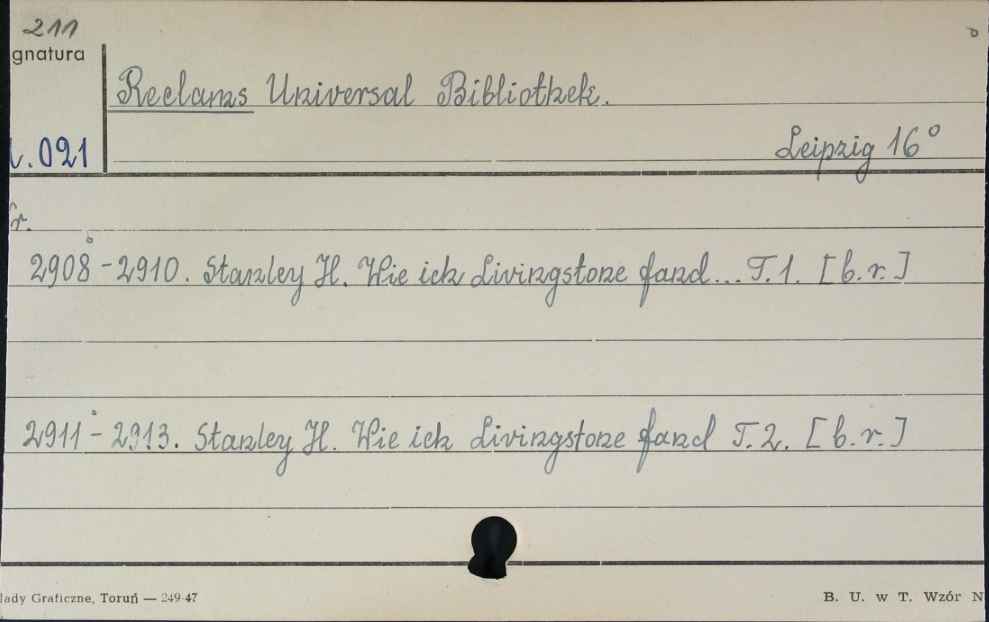 211
gnatura
Reclams Universal Bibliothek.
.021
Leipzig 16°
r.
2908 - 2910. Stanley H. Wie ich Livingstone fand... T.1. [b.r.]
2911 - 2913. Stanley H. Wie ich Livingstone fand T.2. [b.r.]
łady Graficzne, Toruń — 249-47
B. U. w T. Wzór N